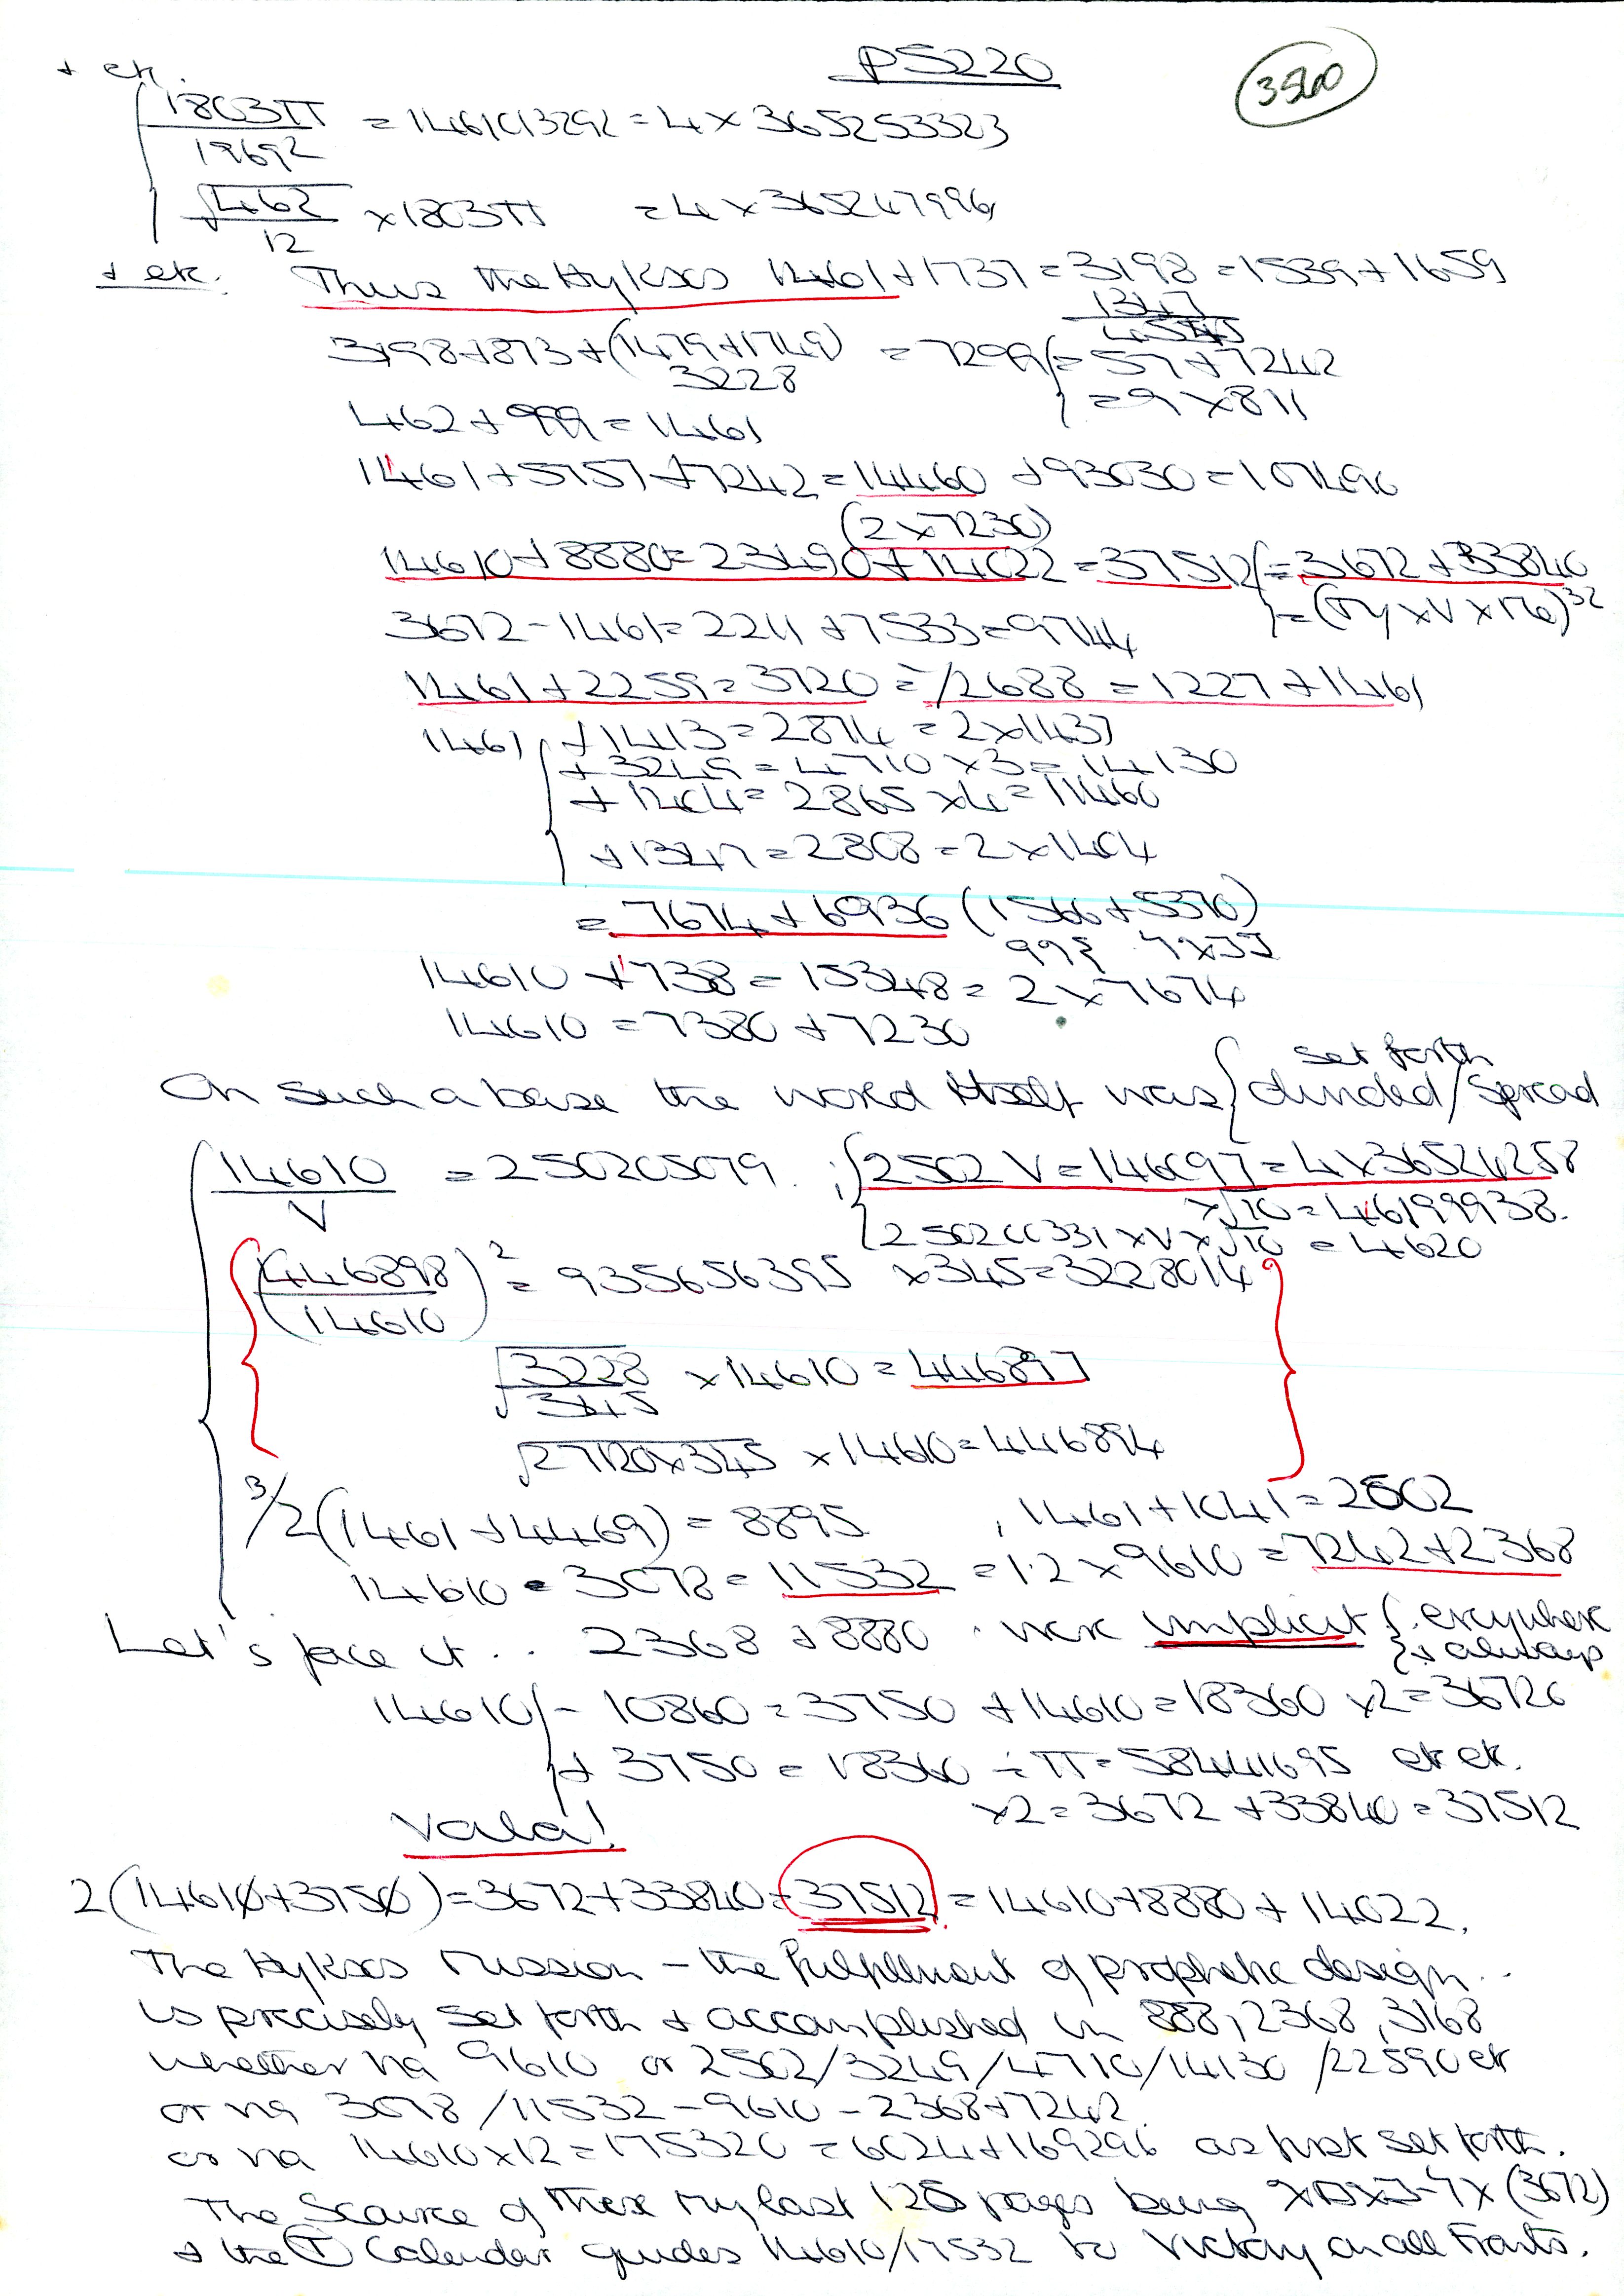 PS220
3560
+ etc.
1803π / 19692 = 1461013292 = 4 × 365253323
√462 / 12 × 1803π = 4 × 365247996
+ etc. Thus the Hyksos 1461 + 1737 = 3198 = 1539 + 1659
1347
3198 + 873 + (1479 + 1749) = 7299 { = 57 + 7242
3228 = 9 × 811
462 + 999 = 1461
1461 + 5757 + 7242 = 14460 + 93030 = 107490
(2 × 7230)
14610 + 8880 = 23490 + 14022 = 37512 { = 3672 + 33840
3672 - 1461 = 2211 + 7533 = 9744
1461 + 2259 = 3720 = /2688 = 1227 + 1461
1461 { + 1413 = 2874 = 2 × 1437
+ 3249 = 4710 × 3 = 14130
+ 1404 = 2865 × 4 = 11460
+ 1347 = 2808 = 2 × 1404
= 7674 + 6936 (1566 + 5370)
14610 + 738 = 15348 = 2 × 7674
14610 = 7380 + 7230
set forth
On such a base the world itself was { divided / spread
14610 / V = 250205079 ; { 2502 V = 146097 = 4 × 36524258
× √10 = 46199938.
250200331 × V × √10 = 4620
(446898 / 14610)² = 935656395 × 345 = 3228014
√3228 / 345 × 14610 = 446897
√27120 × 345 × 14610 = 446894
3/2 (1461 + 4469) = 8895 , 1461 + 1041 = 2502
14610 - 3078 = 11532 = 1·2 × 9610 = 7242 + 2368
Let's face it .. 2368 + 8880 were implicit { everywhere
+ always
14610 { - 10860 = 3750 + 14610 = 18360 × 2 = 36720
+ 3750 = 18360 ÷ π = 58441695 etc etc.
× 2 = 3672 + 33840 = 37512
Vala!
2(14610 + 3750) = 3672 + 33840 = 37512 = 14610 + 8880 + 14022.
The Hyksos Mission – the fulfillment of prophetic design..
is precisely set forth + accomplished in 888, 2368, 3168
whether via 9610 or 2502/3249/4710/14130/22590 etc
or via 3078/11532 – 9610 – 2368 + 7242.
or via 14610 × 12 = 175320 = 6024 + 169296 as first set forth.
The Source of these my last 120 pages being (3672)
+ the Calendar guides 14610/17532 to Victory on all Fronts.